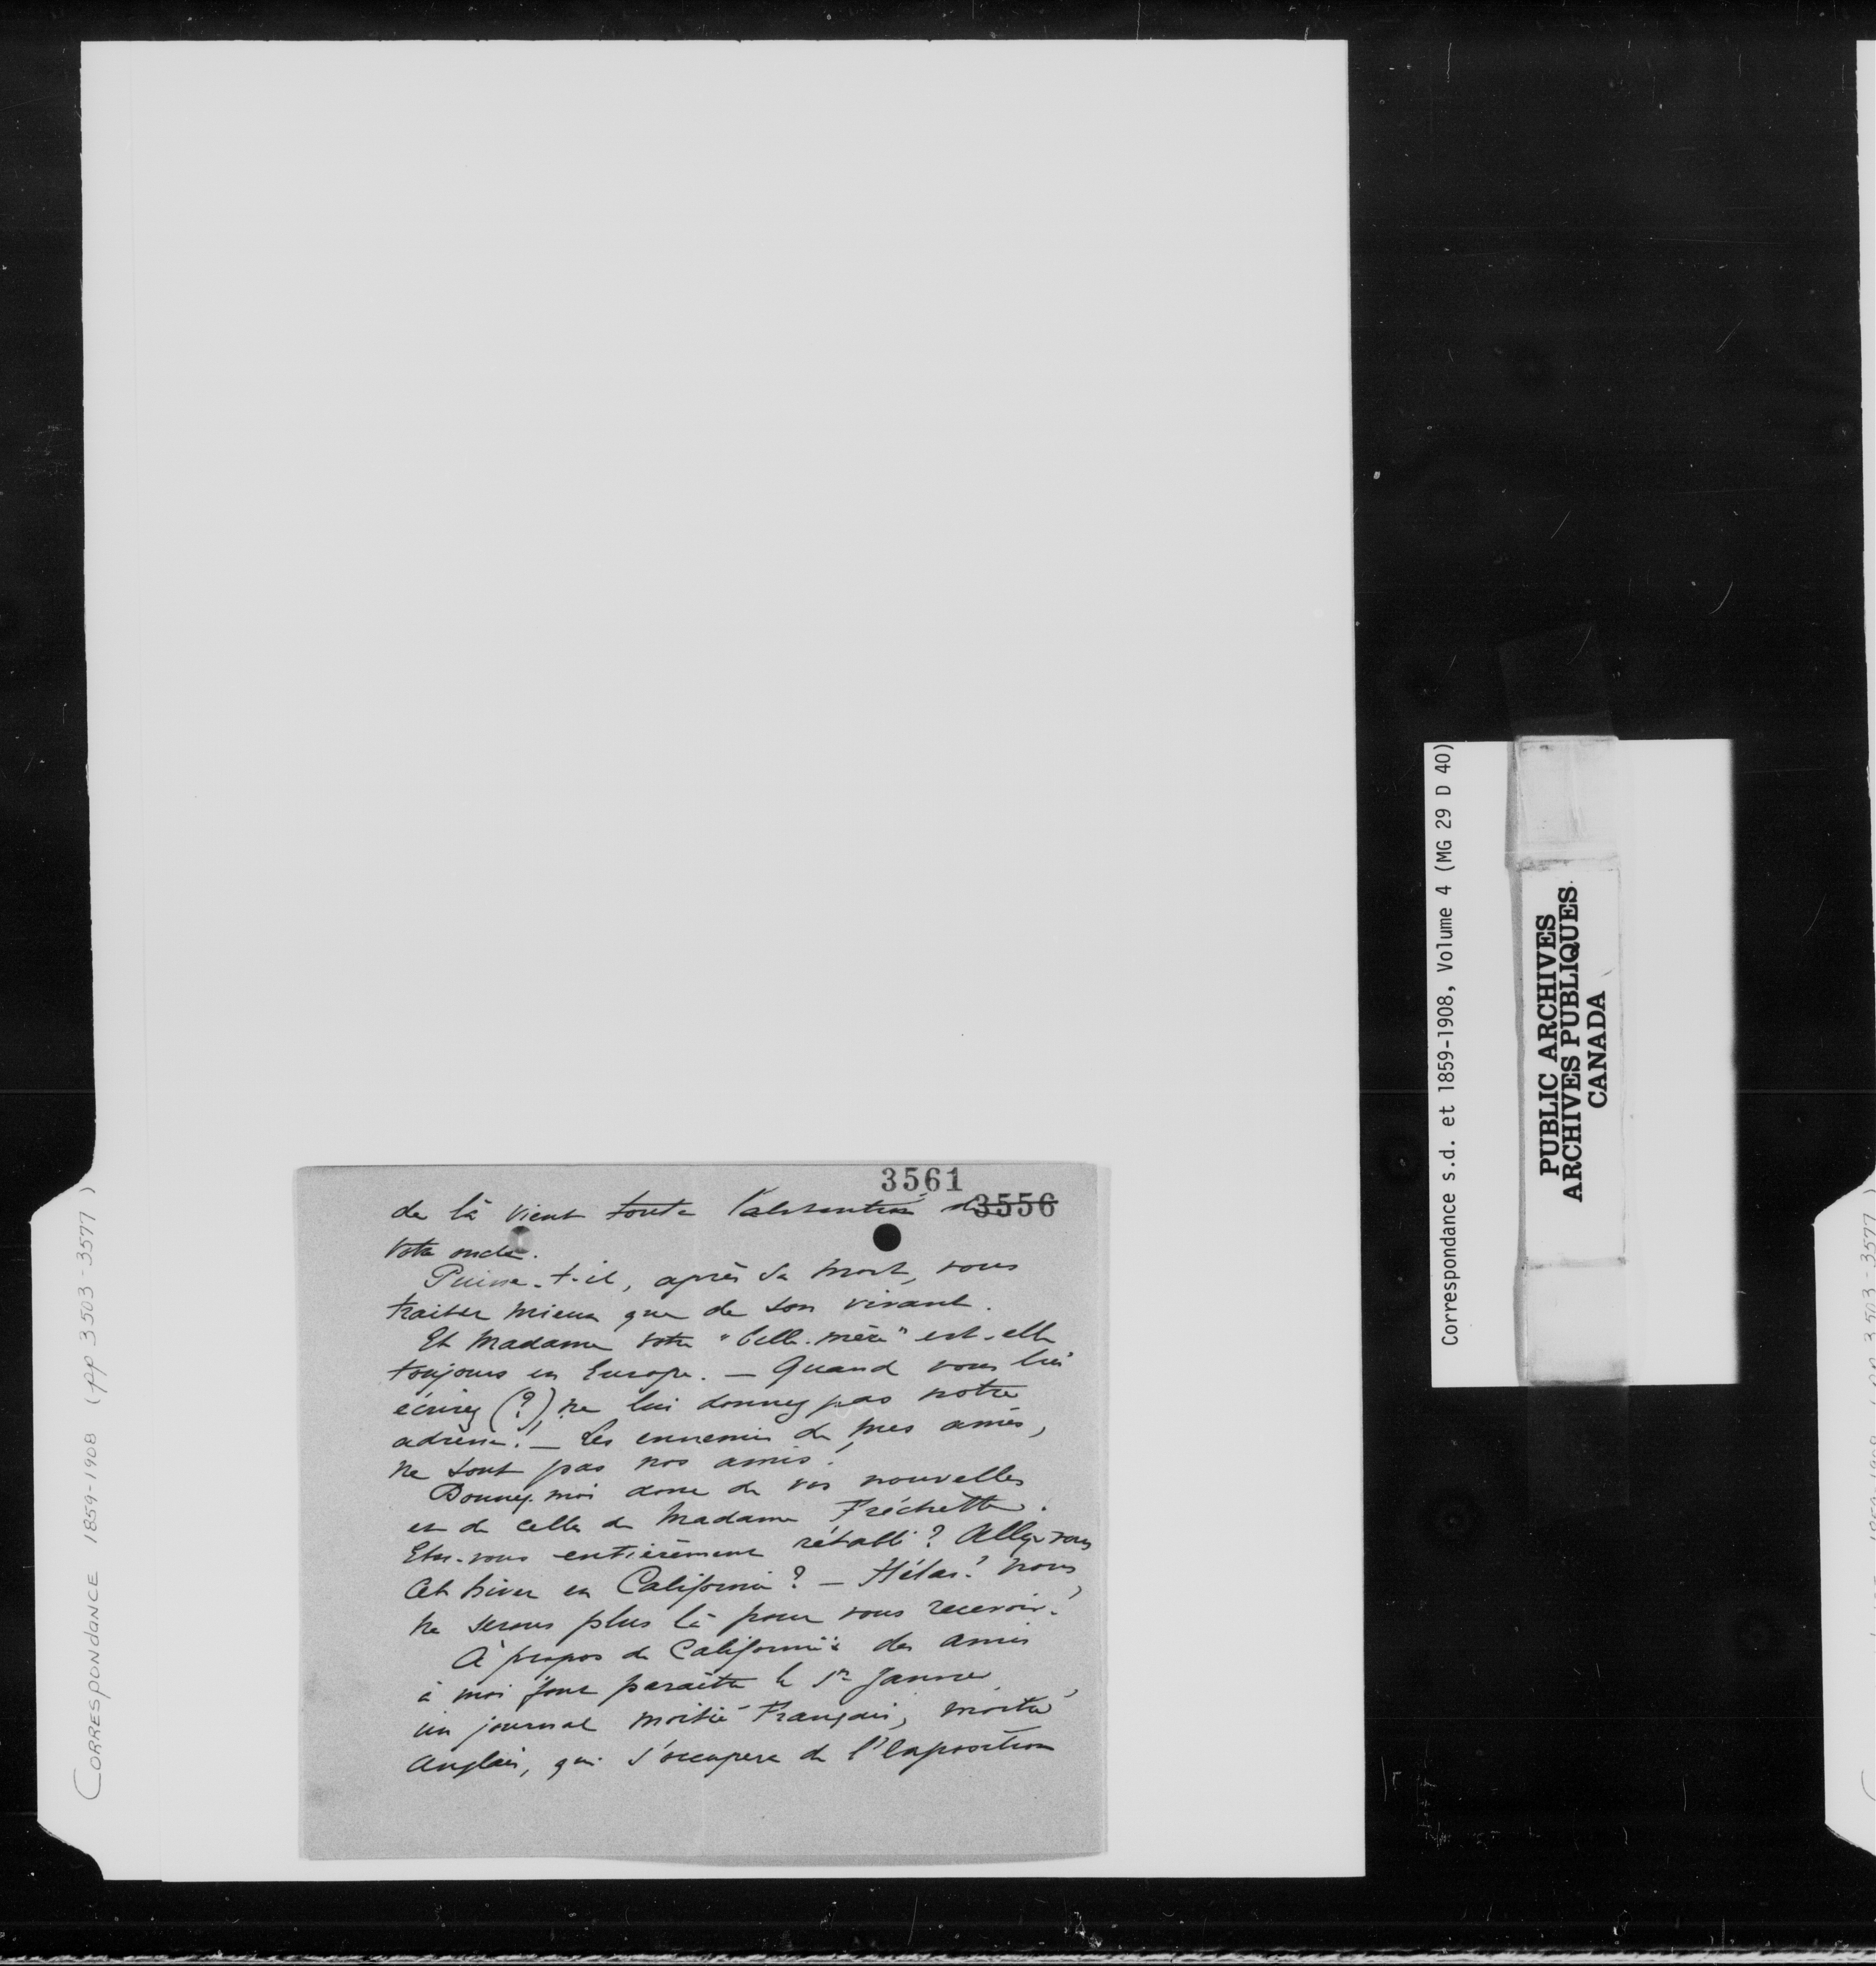 3561
3556
de là vient toute l'abstention de
votre oncle.
Puisse-t-il, après sa mort, vous
traiter mieux que de son vivant.
Et Madame votre "belle-mère" est-elle
toujours en Europe. — Quand vous lui
écrirez (?), ne lui donnez pas notre
adresse! — Les ennemis de mes amis,
ne sont pas nos amis!
Donnez-moi donc de vos nouvelles
et de celles de Madame Fréchette.
Etes-vous entièrement rétabli? Allez-vous
cet hiver en Californie? — Hélas! nous
ne serons plus là pour vous recevoir!
À propos de Californie des amis
à moi font paraître le 1er Janvier,
un journal moitié Français, moitié
Anglais, qui s'occupera de l'Exposition
CORRESPONDANCE 1859-1908 (pp 3503-3577)
Correspondance s.d. et 1859-1908, Volume 4 (MG 29 D 40)
PUBLIC ARCHIVES
ARCHIVES PUBLIQUES
CANADA